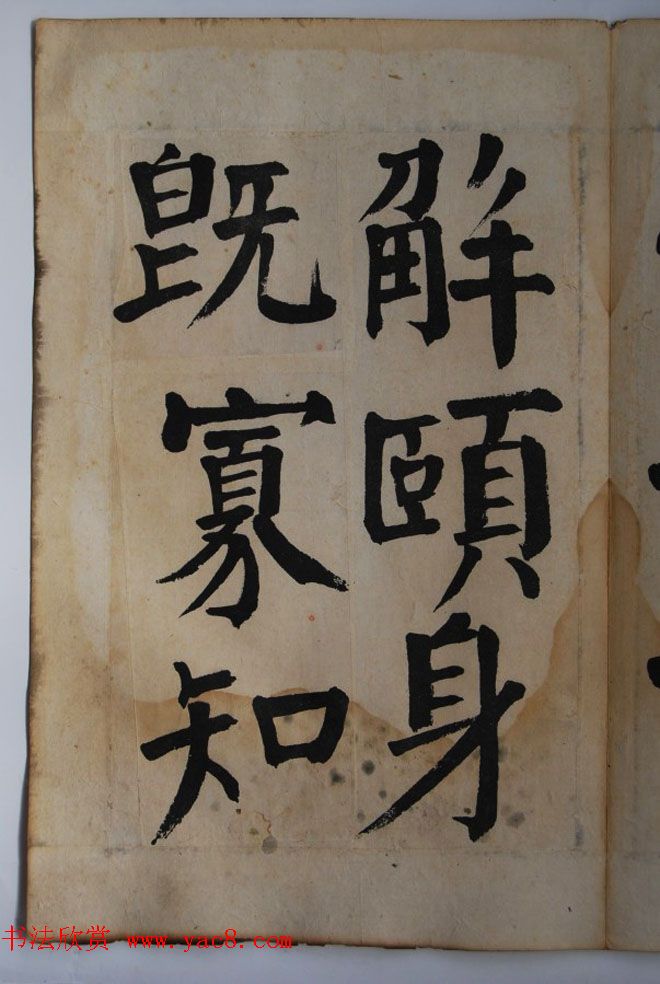 解頤身
既寡知
书法欣赏 www.yac8.com